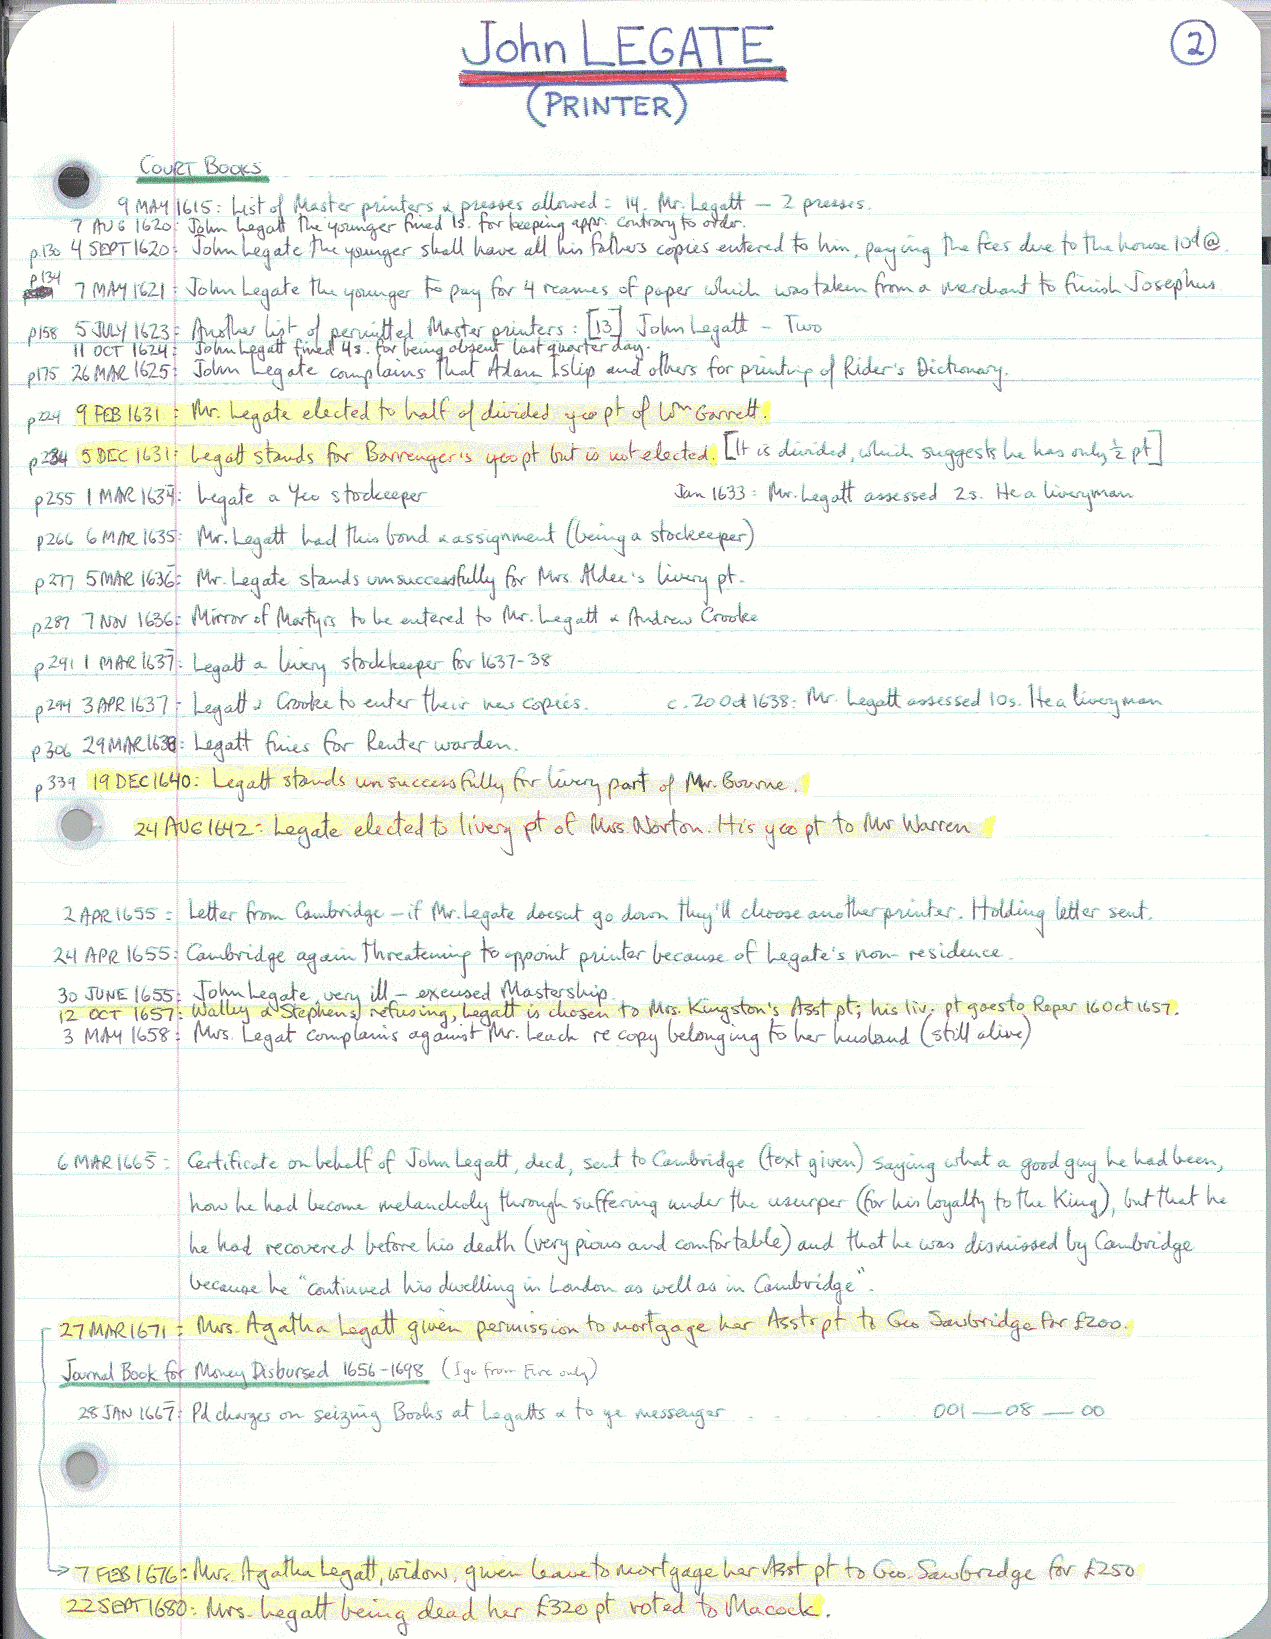 John LEGATE
2
(PRINTER)
COURT BOOKS
9 MAY 1615: List of Master printers & presses allowed: 14. Mr. Legatt — 2 presses.
7 AUG 1620: John Legatt the younger fined 1s. for keeping appr. contrary to order.
p130 4 SEPT 1620: John Legate the younger shall have all his fathers copies entered to him, paying the fees due to the house 10d @.
p134
7 MAY 1621: John Legate the younger to pay for 4 reames of paper which was taken from a merchant to finish Josephus.
p158 5 JULY 1623: Another list of permitted Master printers: [13] John Legatt – Two
11 OCT 1624: John Legatt fined 4s. for being absent last quarter day.
p175 26 MAR 1625: John Legate complains that Adam Islip and others for printing of Rider's Dictionary.
p224 9 FEB 1631: Mr. Legate elected to half of divided yeo pt of Wm Garrett.
p234 5 DEC 1631: Legatt stands for Barrenger's yeo pt but is not elected. [It is divided, which suggests he has only ½ pt]
p255 1 MAR 1634: Legate a Yeo stockeeper Jan 1633: Mr. Legatt assessed 2s. He a liveryman
p266 6 MAR 1635: Mr. Legatt had this bond & assignment (being a stockeeper)
p277 5 MAR 1636: Mr. Legate stands unsuccessfully for Mrs. Aldee's livery pt.
p287 7 NOV 1636: Mirror of Martyrs to be entered to Mr. Legatt & Andrew Crooke
p291 1 MAR 1637: Legatt a livery stockkeeper for 1637-38
p294 3 APR 1637: Legatt & Crooke to enter their new copies. c. 20 Oct 1638: Mr. Legatt assessed 10s. He a liveryman
p306 29 MAR 1638: Legatt fines for Renter warden.
p339 19 DEC 1640: Legatt stands unsuccessfully for livery part of Mr. Bourne.
24 AUG 1642: Legate elected to livery pt of Mrs. Norton. His yeo pt to Mr Warren
2 APR 1655: Letter from Cambridge – if Mr. Legate doesnt go down they'll choose another printer. Holding letter sent.
24 APR 1655: Cambridge again threatening to appoint printer because of Legate's non-residence.
30 JUNE 1655: John Legate, very ill – excused Mastership.
12 OCT 1657: Walley & Stephens refusing, Legatt is chosen to Mrs. Kingston's Asst pt; his liv. pt goes to Roper 16 Oct 1657.
3 MAY 1658: Mrs. Legat complains against Mr. Leach re copy belonging to her husband (still alive)
6 MAR 1665: Certificate on behalf of John Legatt, decd, sent to Cambridge (text given) saying what a good guy he had been,
how he had become melancholy through suffering under the usurper (for his loyalty to the King), but that he
he had recovered before his death (very pious and comfortable) and that he was dismissed by Cambridge
because he "continued his dwelling in London as well as in Cambridge".
27 MAR 1671: Mrs. Agatha Legatt given permission to mortgage her Assts pt to Geo Sawbridge for £200.
Journal Book for Money Disbursed 1656-1698 (I go from Fire only)
28 JAN 1667: Pd charges on seizing Books at Legatts & to ye messenger . . . 001 — 08 — 00
7 FEB 1676: Mrs. Agatha Legatt, widow, given leave to mortgage her Asst pt to Geo. Sawbridge for £250
22 SEPT 1680: Mrs. Legatt being dead her £320 pt voted to Macock.